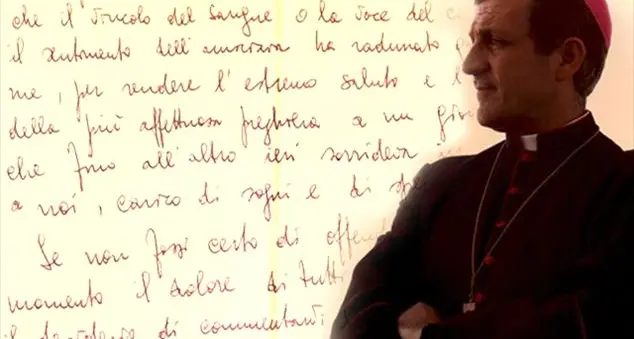 che il vincolo del sangue o la voce del
il sentimento dell'amicizia ha radunato
me, per rendere l'estremo saluto e
della più affettuosa preghiera a un
che fino all'altro ieri sorrideva
a noi, carico di sogni e di
Se non fossi certo di
momento il dolore di tutti
il desiderio di commentarvi